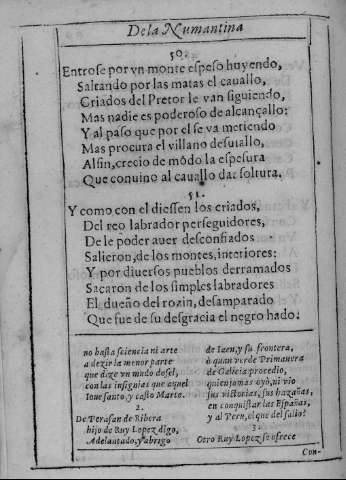 De la Numantina
50.
Entrose por vn monte espeso huyendo,
Saltando por las matas el cauallo,
Criados del Pretor le van siguiendo,
Mas nadie es poderoso de alcançallo:
Y al paso que por el se va metiendo
Mas procura el villano desuiallo,
Alfin, crecio de módo la espesura
Que conuino al cauallo dar soltura.
51.
Y como con el diessen los criados,
Del reo labrador perseguidores,
De le poder auer desconfiados
Salieron, de los montes, interiores:
Y por diuersos pueblos derramados
Sacaron de los simples labradores
El dueño del rozin, desamparado
Que fue de su desgracia el negro hado.
no basta sciencia ni arte
a dezir la menor parte
que dize vn mudo dosel,
con las insignias que aquel
Ioue santo, y casto Marte.
2.
De Perafan de Ribera
hijo de Ruy Lopez digo,
Adelantado, y abrigo
de Iaen, y su frontera,
ô quan verde Primauera
de Galicia procedio,
quien jamas oyò, ni vio
sus victorias, sus hazañas,
en conquistar las Españas,
y al Perù, el que del salio?
3.
Otro Ruy Lopez se ofrece
Con-